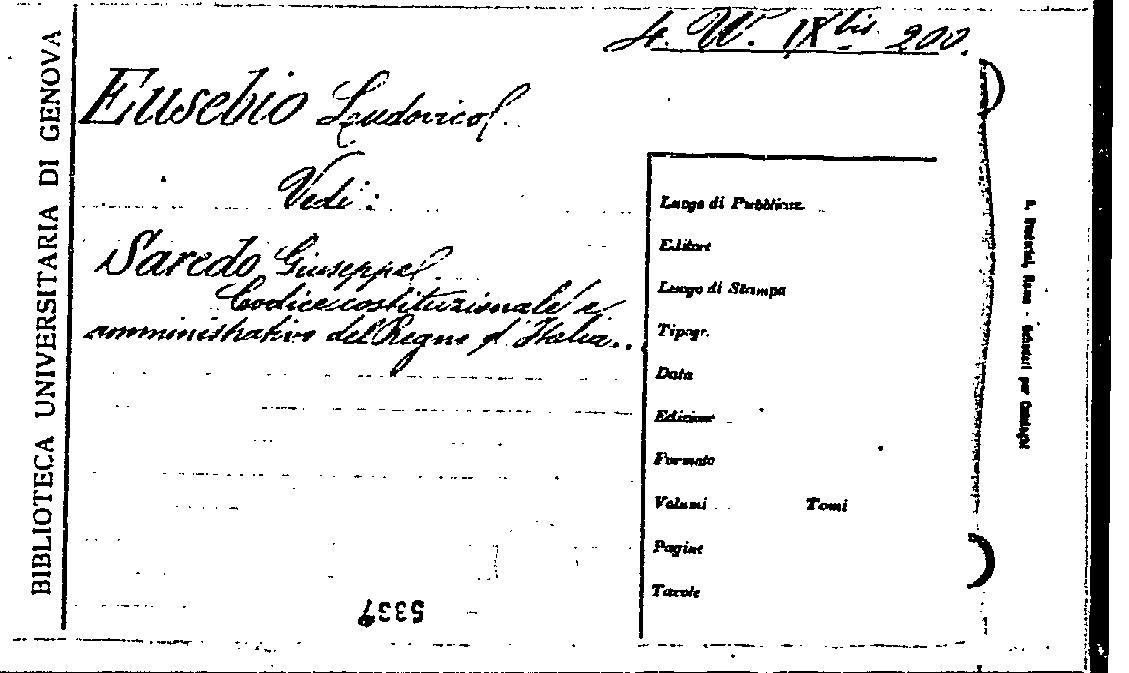 4. W. IX bis. 200.
BIBLIOTECA UNIVERSITARIA DI GENOVA
Eusebio Ludovico.
Vedi:
Saredo Giuseppe.
Codice costituzionale e
amministrativo del Regno d'Italia..
Luogo di Pubblicaz.
Editore
Luogo di Stampa
Tipogr.
Data
Edizione
Formato
Volumi Tomi
Pagine
Tavole
Roma - Schedari per Cataloghi
5337